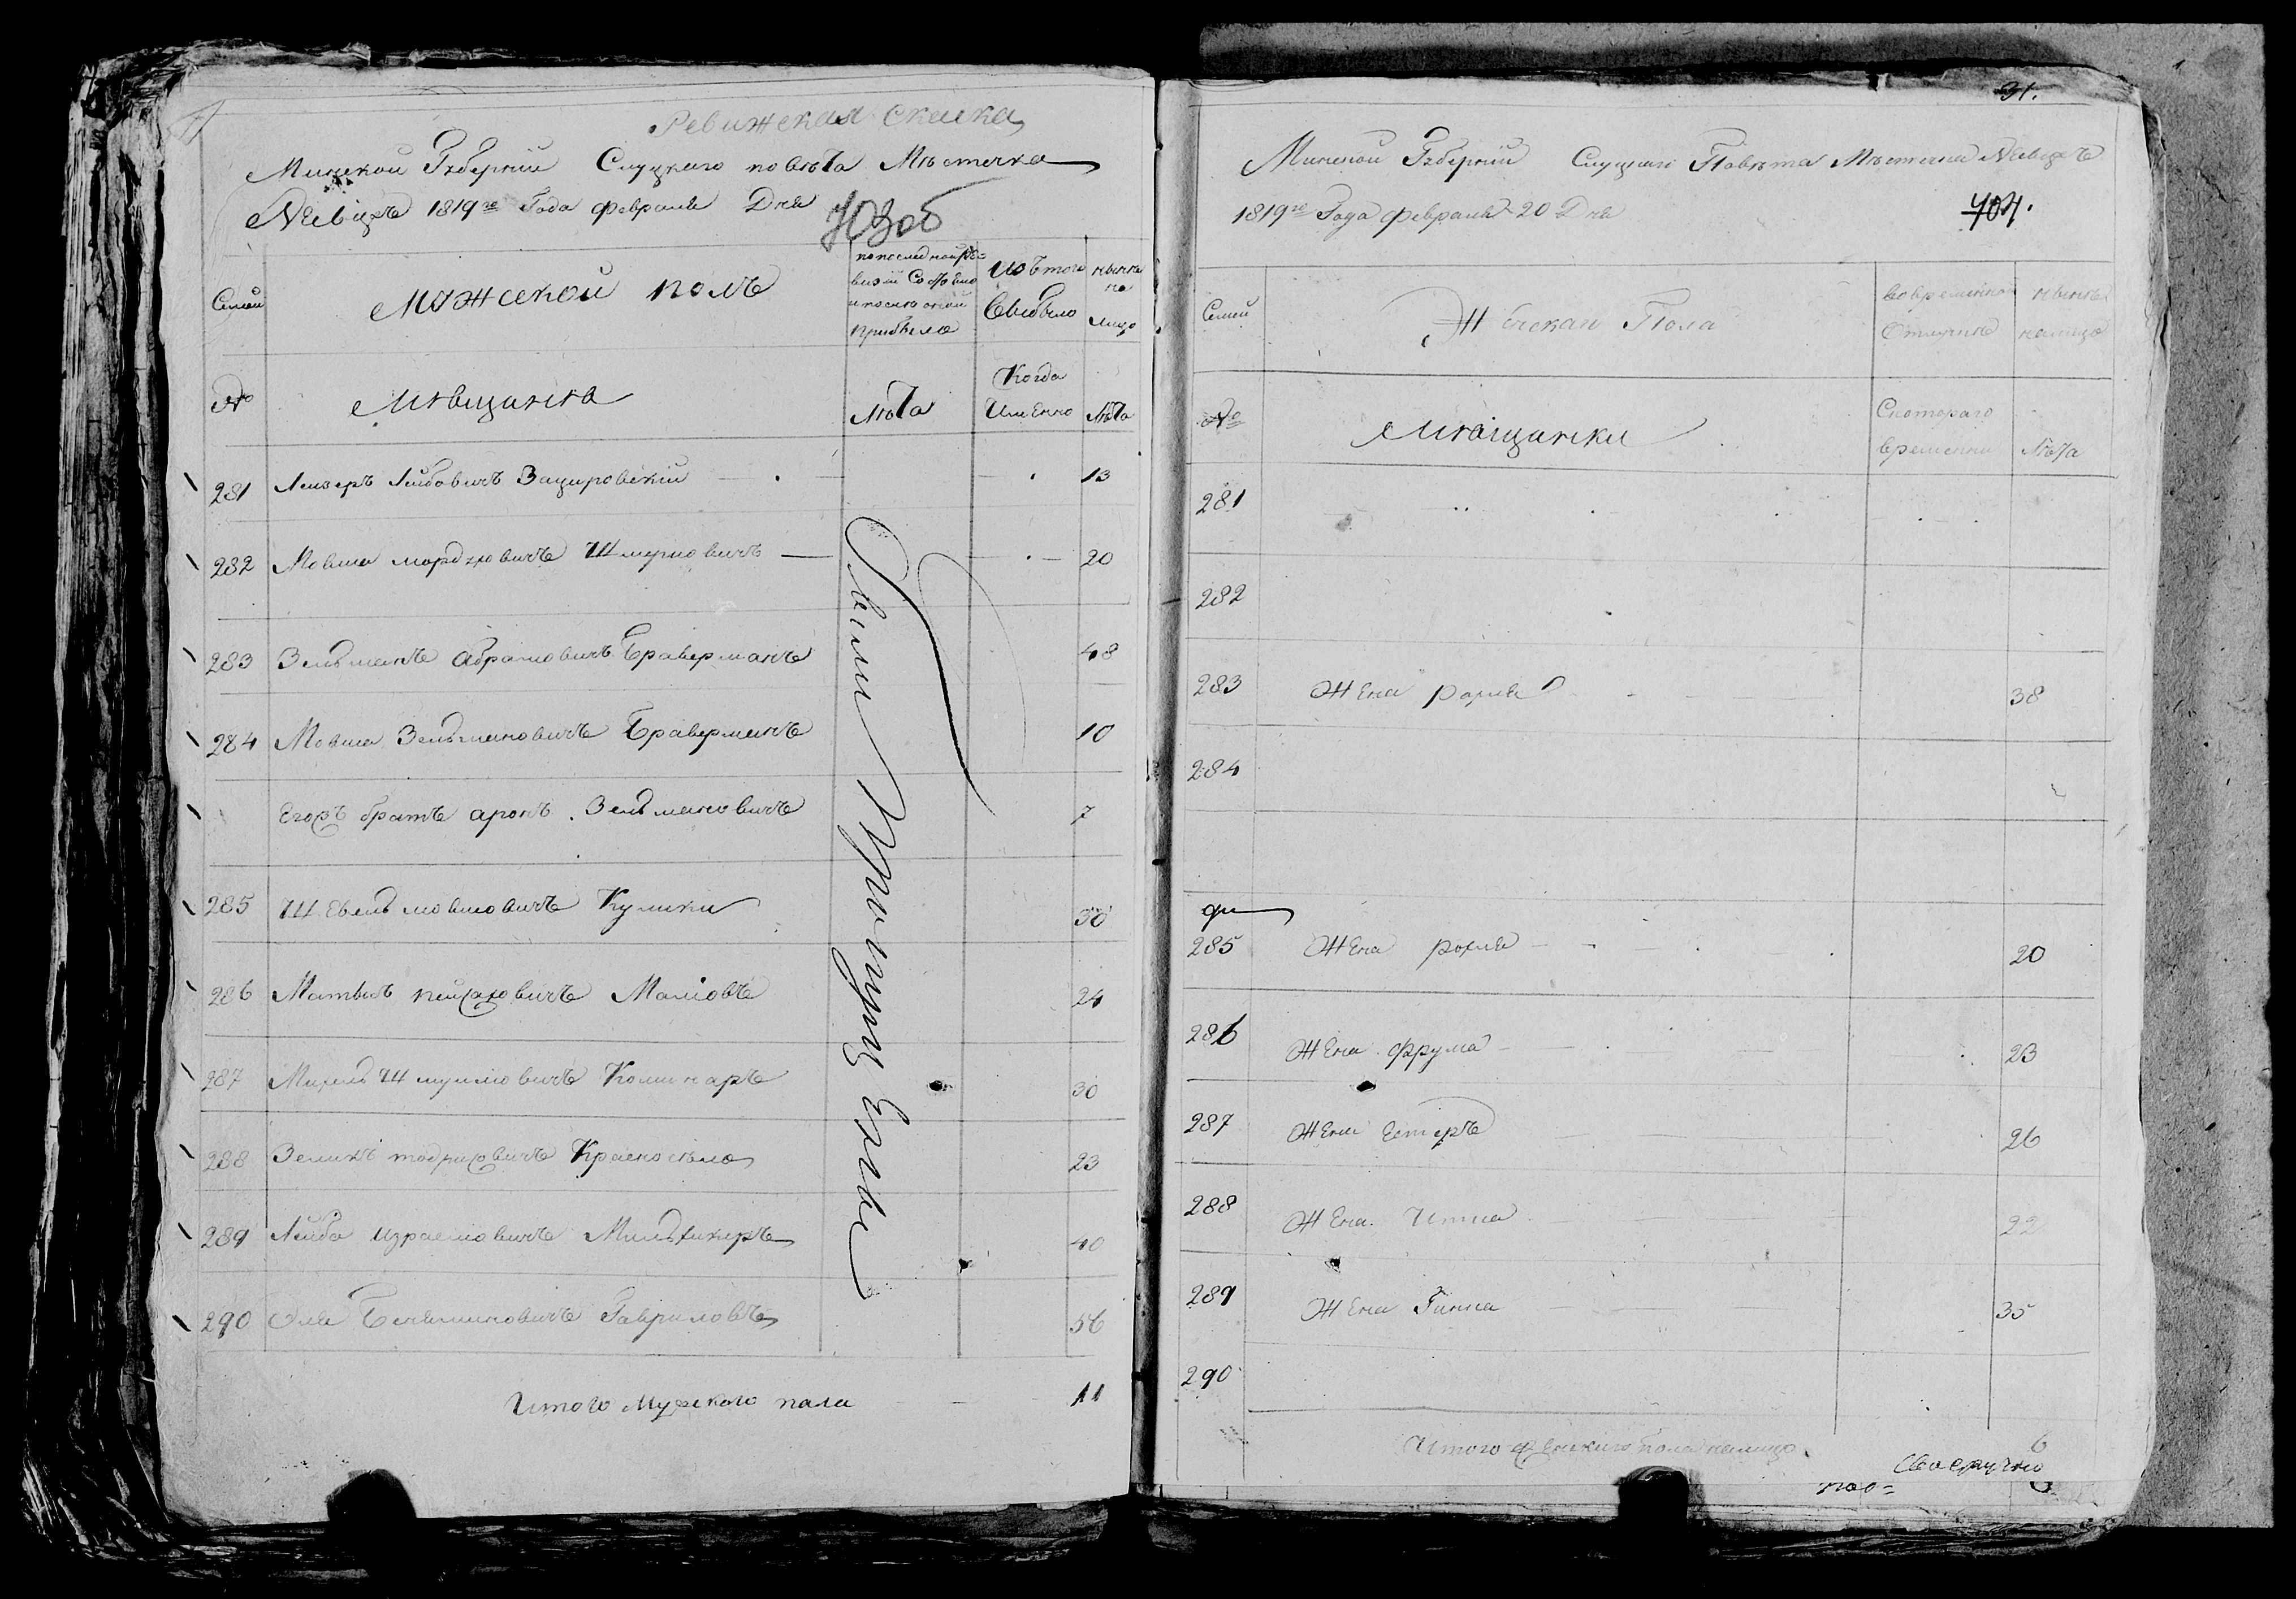 Ревижская скаска
Минской Гꙋберніи Слуцкаго повѣта Мѣстечка
Несвижѣ 1819го Года февраля Дня
Семьи
Мꙋжской полъ
по последней ре=
визіи Состояло
и после оной
прибыло
Изъ того
Выбыло
нынѣ
на
лицо
№
Мѣщанѣ
Лѣта
Когда
Именно
Лѣта
281 Лейзеръ Лейбовичъ Зацировскій 13
282 Мовша мордховичъ Шмерковичъ 20
283 Зельманъ Абрамовичъ Браверманъ 48
284 Мовша Зельмановичъ Браверманъ 10
Егоръ братъ аронъ Зельмановичъ 7
285 Шевель мовшовичъ Кулики 30
286 пейсаховичъ 24
287 Михель Шмуиловичъ Коминаръ 30
288 Зеликъ Красносѣло 23
289 Лейба израелювичъ 40
290 Еля Беньминовичъ Гавриловъ 56
Итого Мужеского пала 11
31.
Минской Гꙋберніи Слуцкаго Повѣта Мѣстечка Несвижѣ
1819го Года февраля 20 Дня
704.
Семьи
Женскаго Пола
во временной
Отлучкѣ
нынѣ
налицо
№
Мѣщанки
Скотораго
времени
Лѣта
281
282
283 Жена рохля 38
284
285 Жена рохля 20
286 Жена Фрума 23
287 Жена Естеръ 26
288 Жена Итка 22
289 Жена Гинна 35
290
Итого женскаго пола налицо 6
Своеручно